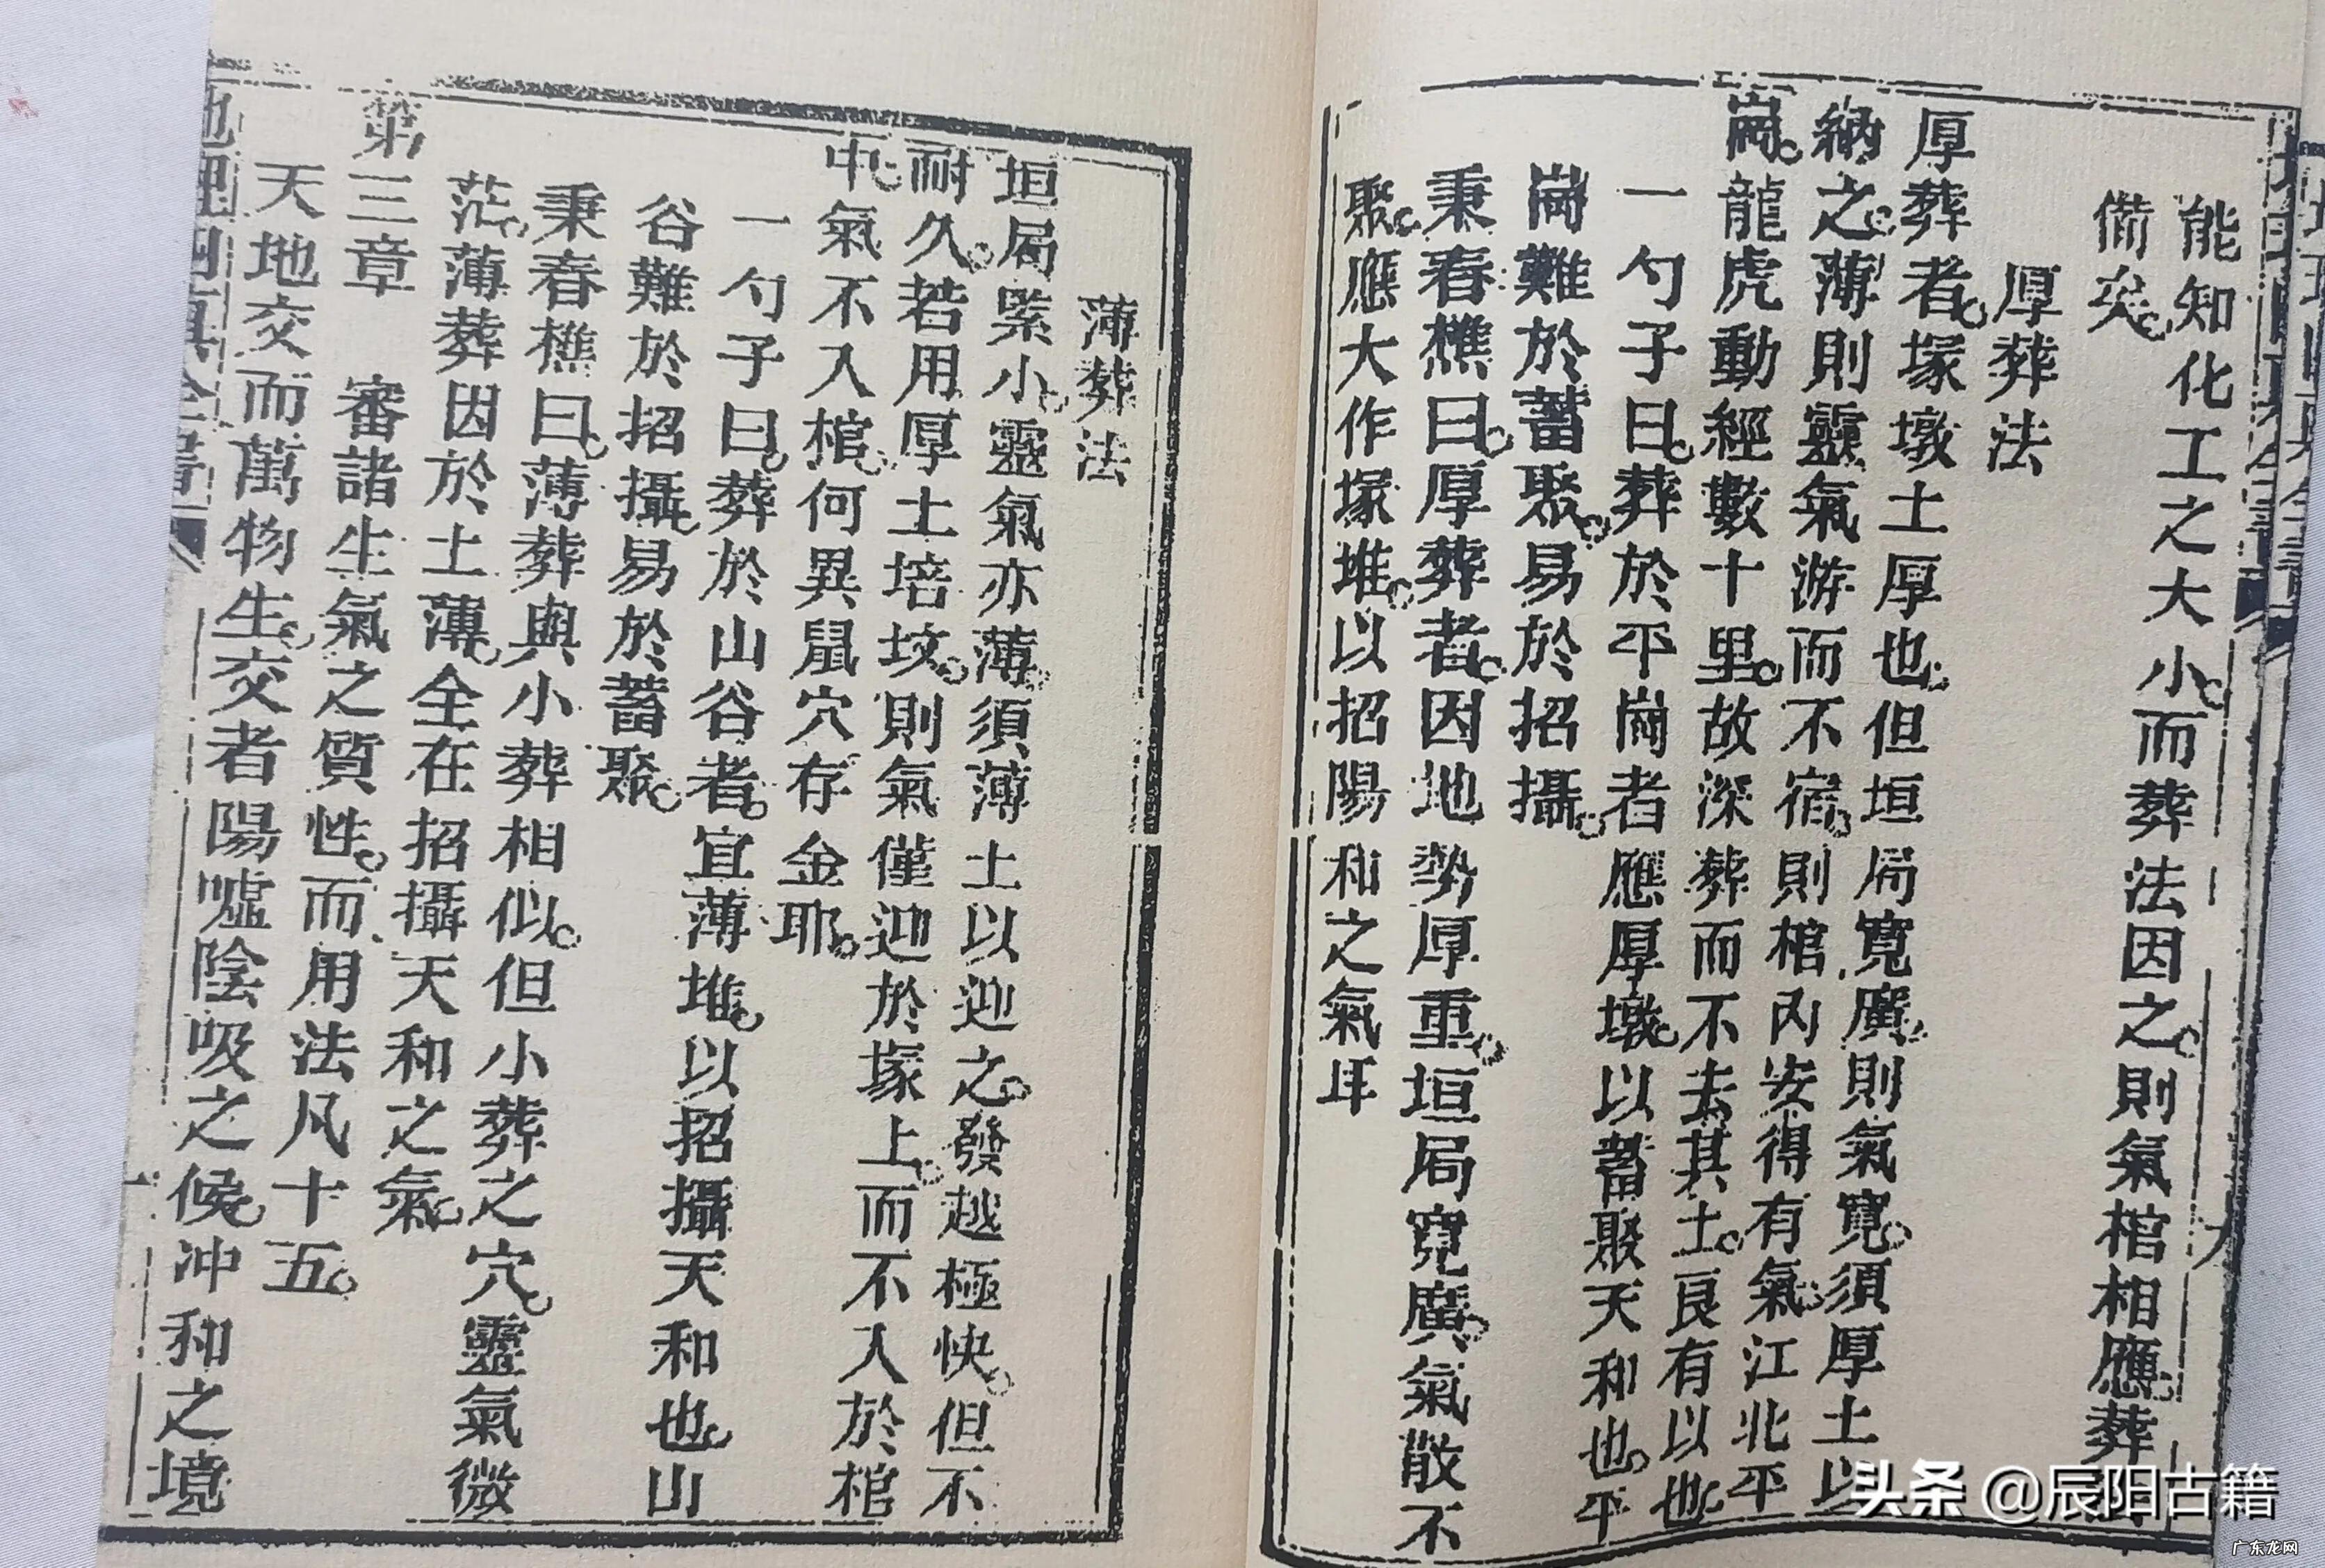 能知化工之大小而葬法因之則氣棺相應葬
備矣
厚葬法
厚葬者塚墩土厚也但垣局寬廣則氣寬須厚土以
納之薄則靈氣游而不宿則棺內安得有氣江北平
崗龍虎動經數十里故深葬而不去其土良有以也
一勺子曰葬於平崗者應厚墩以蓄聚天和也平
崗難於蓄聚易於招攝
秉春樵曰厚葬者因地勢厚重垣局寬廣氣散不
聚應大作塚堆以招陽和之氣耳
薄葬法
垣局緊小靈氣亦薄須薄土以迎之發越極快但不
耐久若用厚土培坟則氣僅迎於塚上而不入於棺
中氣不入棺何異鼠穴存金耶
一勺子曰葬於山谷者宜薄堆以招攝天和也山
谷難於招攝易於蓄聚
秉春樵曰薄葬與小葬相似但小葬之穴靈氣微
茫薄葬因於土薄全在招攝天和之氣
第三章 審諸生氣之質性而用法凡十五
天地交而萬物生交者陽噓陰吸之候冲和之境
頭条 @辰阳古籍
广东龙网